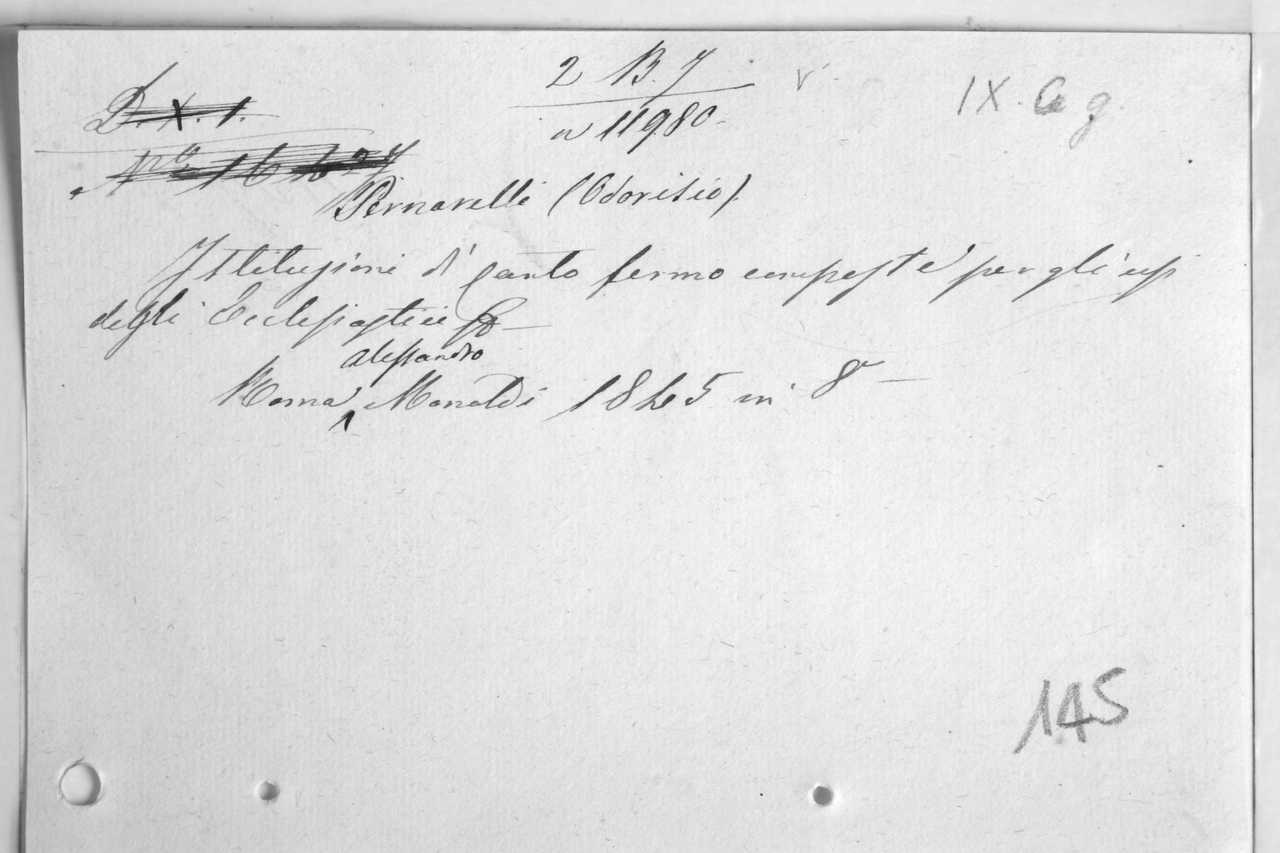 2 B. 7 v
IX. G g.
D. X. 1.
a 11980.
Pirnarelli (Odorisio).
Istituzioni di Canto fermo composte per gli usi
degli Ecclesiastici
Alessandro
Roma Monaldi 1845 in 8°
145